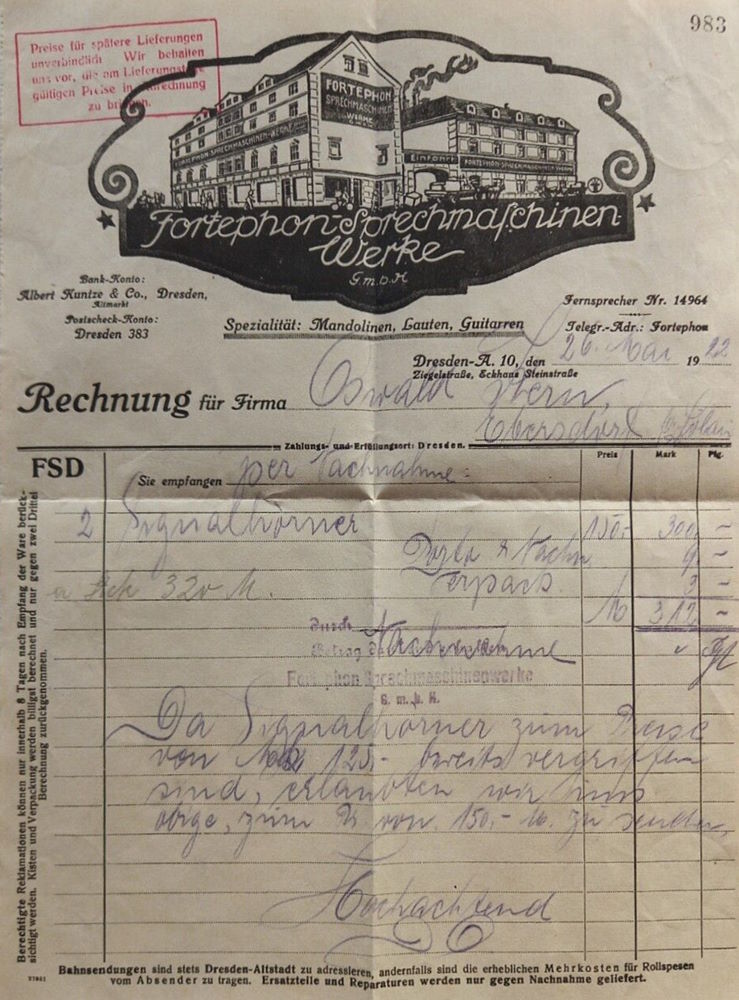 983
Preise für spätere Lieferungen
unverbindlich Wir behalten
uns vor, die am Lieferungstage
gültigen Preise in Anrechnung
zu bringen.
FORTEPHON
SPRECHMASCHINEN
WERKE
G.M.B.H.
FORTEPHON-SPRECHMASCHINEN-WERKE
Einfahrt
FORTEPHON-SPRECHMASCHINEN-WERKE
Fortephon-Sprechmaschinen-
Werke
G.m.b.H
Bank-Konto:
Albert Kuntze & Co., Dresden,
Altmarkt
Postscheck-Konto:
Dresden 383
Spezialität: Mandolinen, Lauten, Guitarren
Fernsprecher Nr. 14964
Telegr.-Adr.: Fortephon
Dresden-A. 10, den 26. Mai 1922
Ziegelstraße, Eckhaus Steinstraße
Rechnung für Firma Oswald
Ebersdorf b/ Löbau
Zahlungs- und Erfüllungsort: Dresden.
FSD
Sie empfangen per Nachnahme:
Preis Mark Pfg.
2 Signalhörner 150,- 300 -
Porto & Nachn 9 -
Verpack 3 -
a 320 M.
M 312 -
Durch Nachnahme
Betrag
Fortephon Sprechmaschinenwerke
G. m. b. H.
Da Signalhörner zum Preise
von 125.- bereits vergriffen
sind, erlaubten wir uns
obige, zum P. von 150,- M. zu senden.
Hochachtend
Berechtigte Reklamationen können nur innerhalb 8 Tagen nach Empfang der Ware berück-
sichtigt werden. Kisten und Verpackung werden billigst berechnet und nur gegen zwei Drittel
Berechnung zurückgenommen.
Bahnsendungen sind stets Dresden-Altstadt zu adressieren, andernfalls sind die erheblichen Mehrkosten für Rollspesen
vom Absender zu tragen. Ersatzteile und Reparaturen werden nur gegen Nachnahme geliefert.